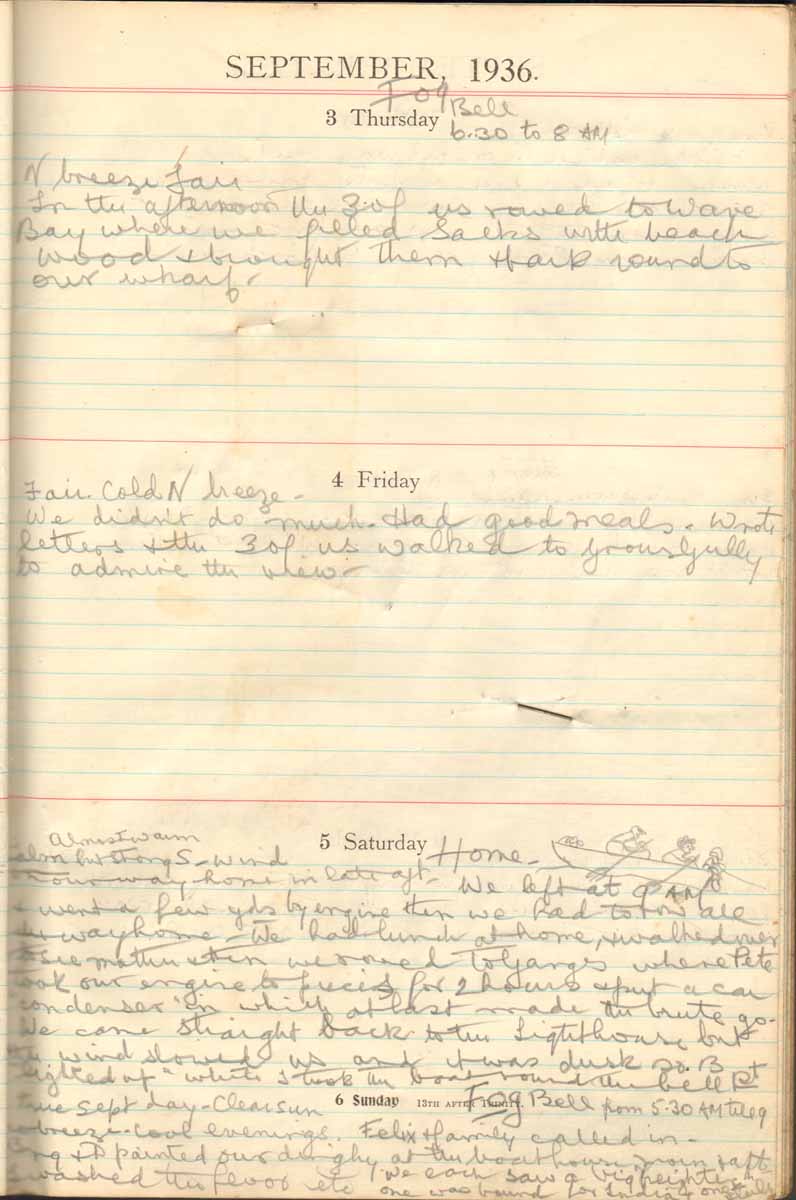 SEPTEMBER, 1936.
Fog Bell
3 Thursday
6.30 to 8 AM
N breeze Fair
In the afternoon the 3 of us rowed to Wave
Bay where we filled Sacks with beach
wood & brought them back round to
our wharf.
4 Friday
Fair. Cold N breeze -
We didn't do much. Had good meals. Wrote
letters & the 3 of us walked to
to admire the view -
Almost warm
5 Saturday
Home -
but strong S - wind
our way home in late aft.
We left at 9 AM
went a few yds by engine then we had to row all
way home - We had lunch at home, & walked over
& then we rowed to Ganges where Pete
took our engine to pieces for 2 hours & put a car
condenser in which at last made the brute go -
We came straight back to the Lighthouse but
wind slowed us and it was dusk so B
"lighted up" while I took the boat round the bell Pt
6 Sunday
13TH AFTER TRINITY.
Fog Bell from 5.30 AM till 9
Sept day - Clear sun
breeze - cool evenings. Felix & family called in -
& D painted our dinghy at the boathouse
washed the floor etc
We each saw a big freighter
one was bound for